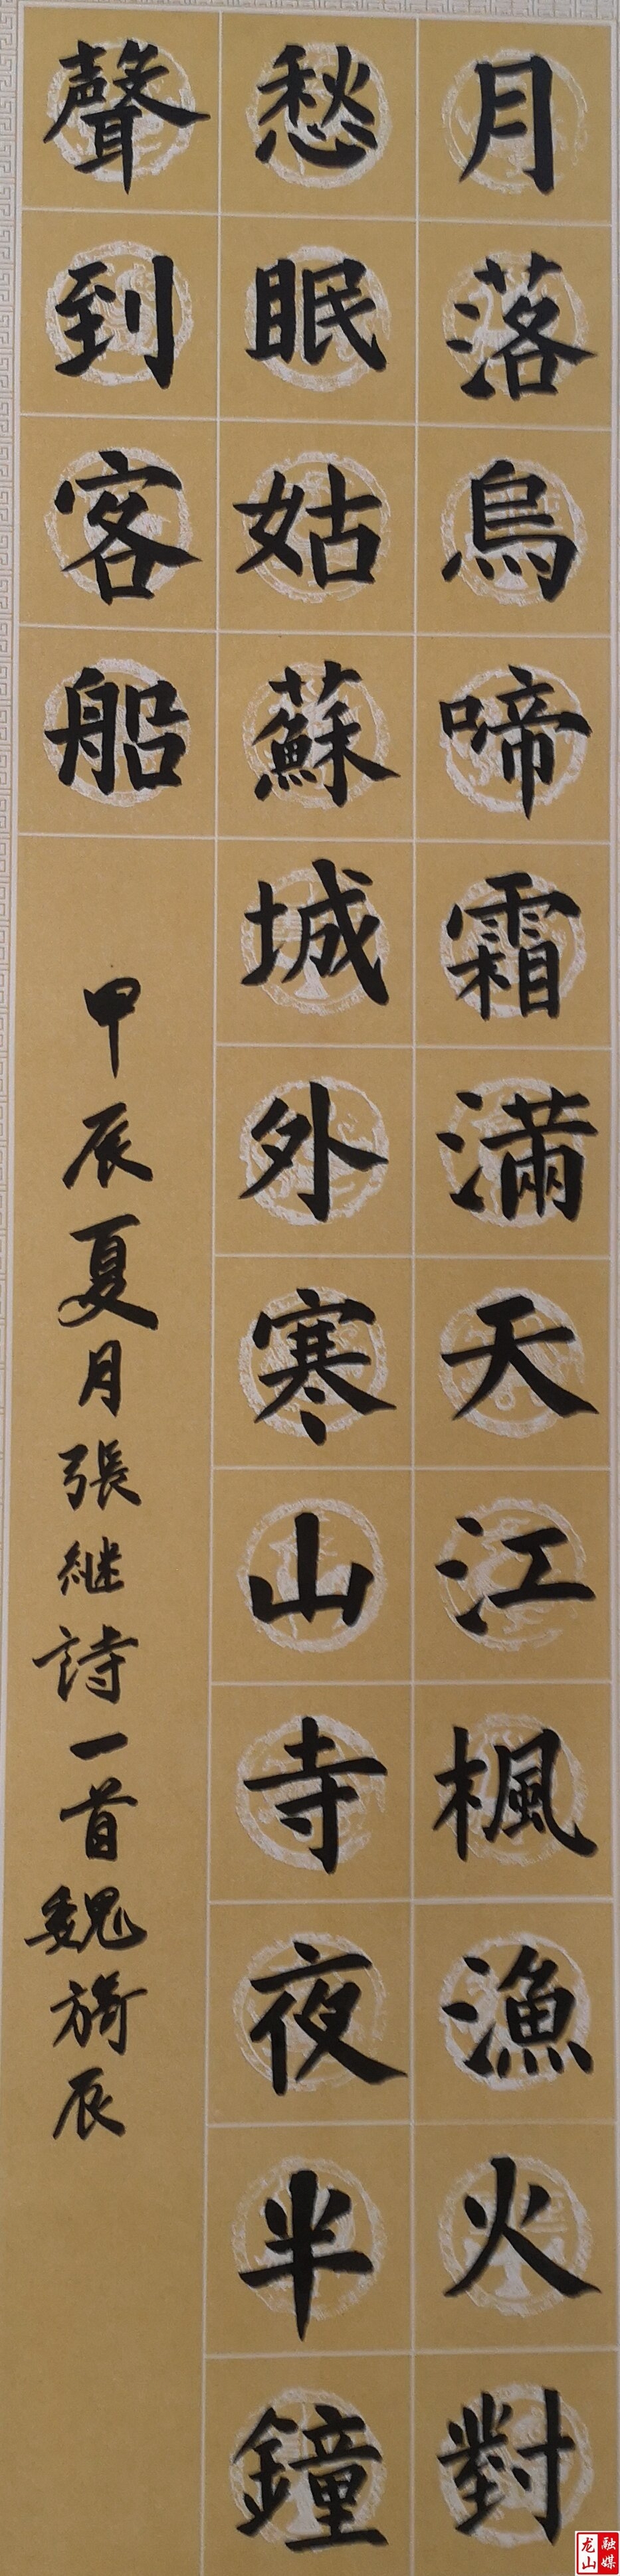 月落烏啼霜滿天江楓漁火對
愁眠姑蘇城外寒山寺夜半鐘
聲到客船
甲辰夏月張継詩一首魏旖辰
龙山融媒